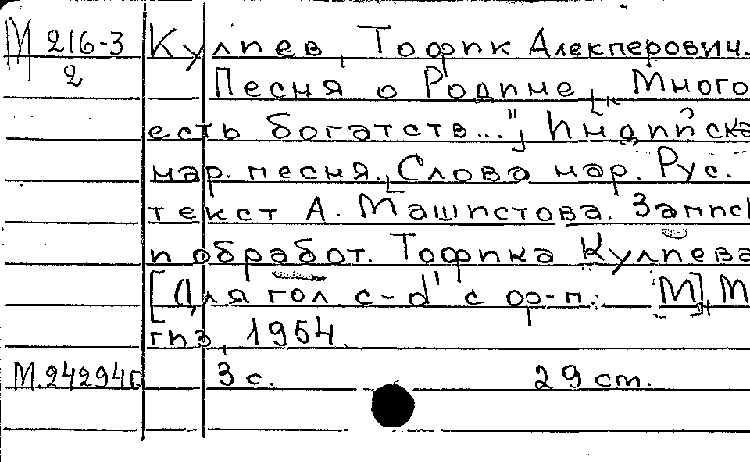 М 216-3
2
Кулиев, Тофик Алекперович.
Песня о Родине ["Много
есть богатств..."], Индийска
нар. песня. [Слова нар. Рус.
текст А. Машистова. Запись
и обработ. Тофика Кулиева
[Для гол. c-d' с ф-п. [М], М
гиз, 1954.
М.24294
3 с. 29 см.